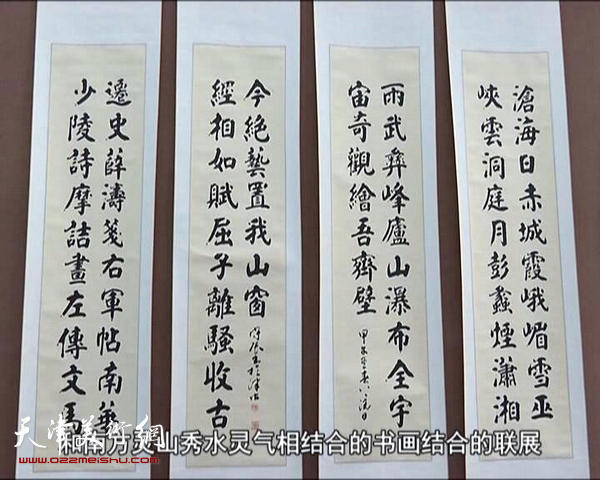 滄海日赤城霞峨嵋雪巫
峽雲洞庭月彭蠡煙瀟湘
雨武彝峰廬山瀑布全宇
宙奇觀繪吾齊壁
少陵詩摩詰畫左傳文馬
遷史薛濤箋右軍帖南華
經相如賦屈子離騷收古
今絕藝置我山窗
和南方灵山秀水灵气相结合的书画结合的联展
天津美術網
www.022meishu.com